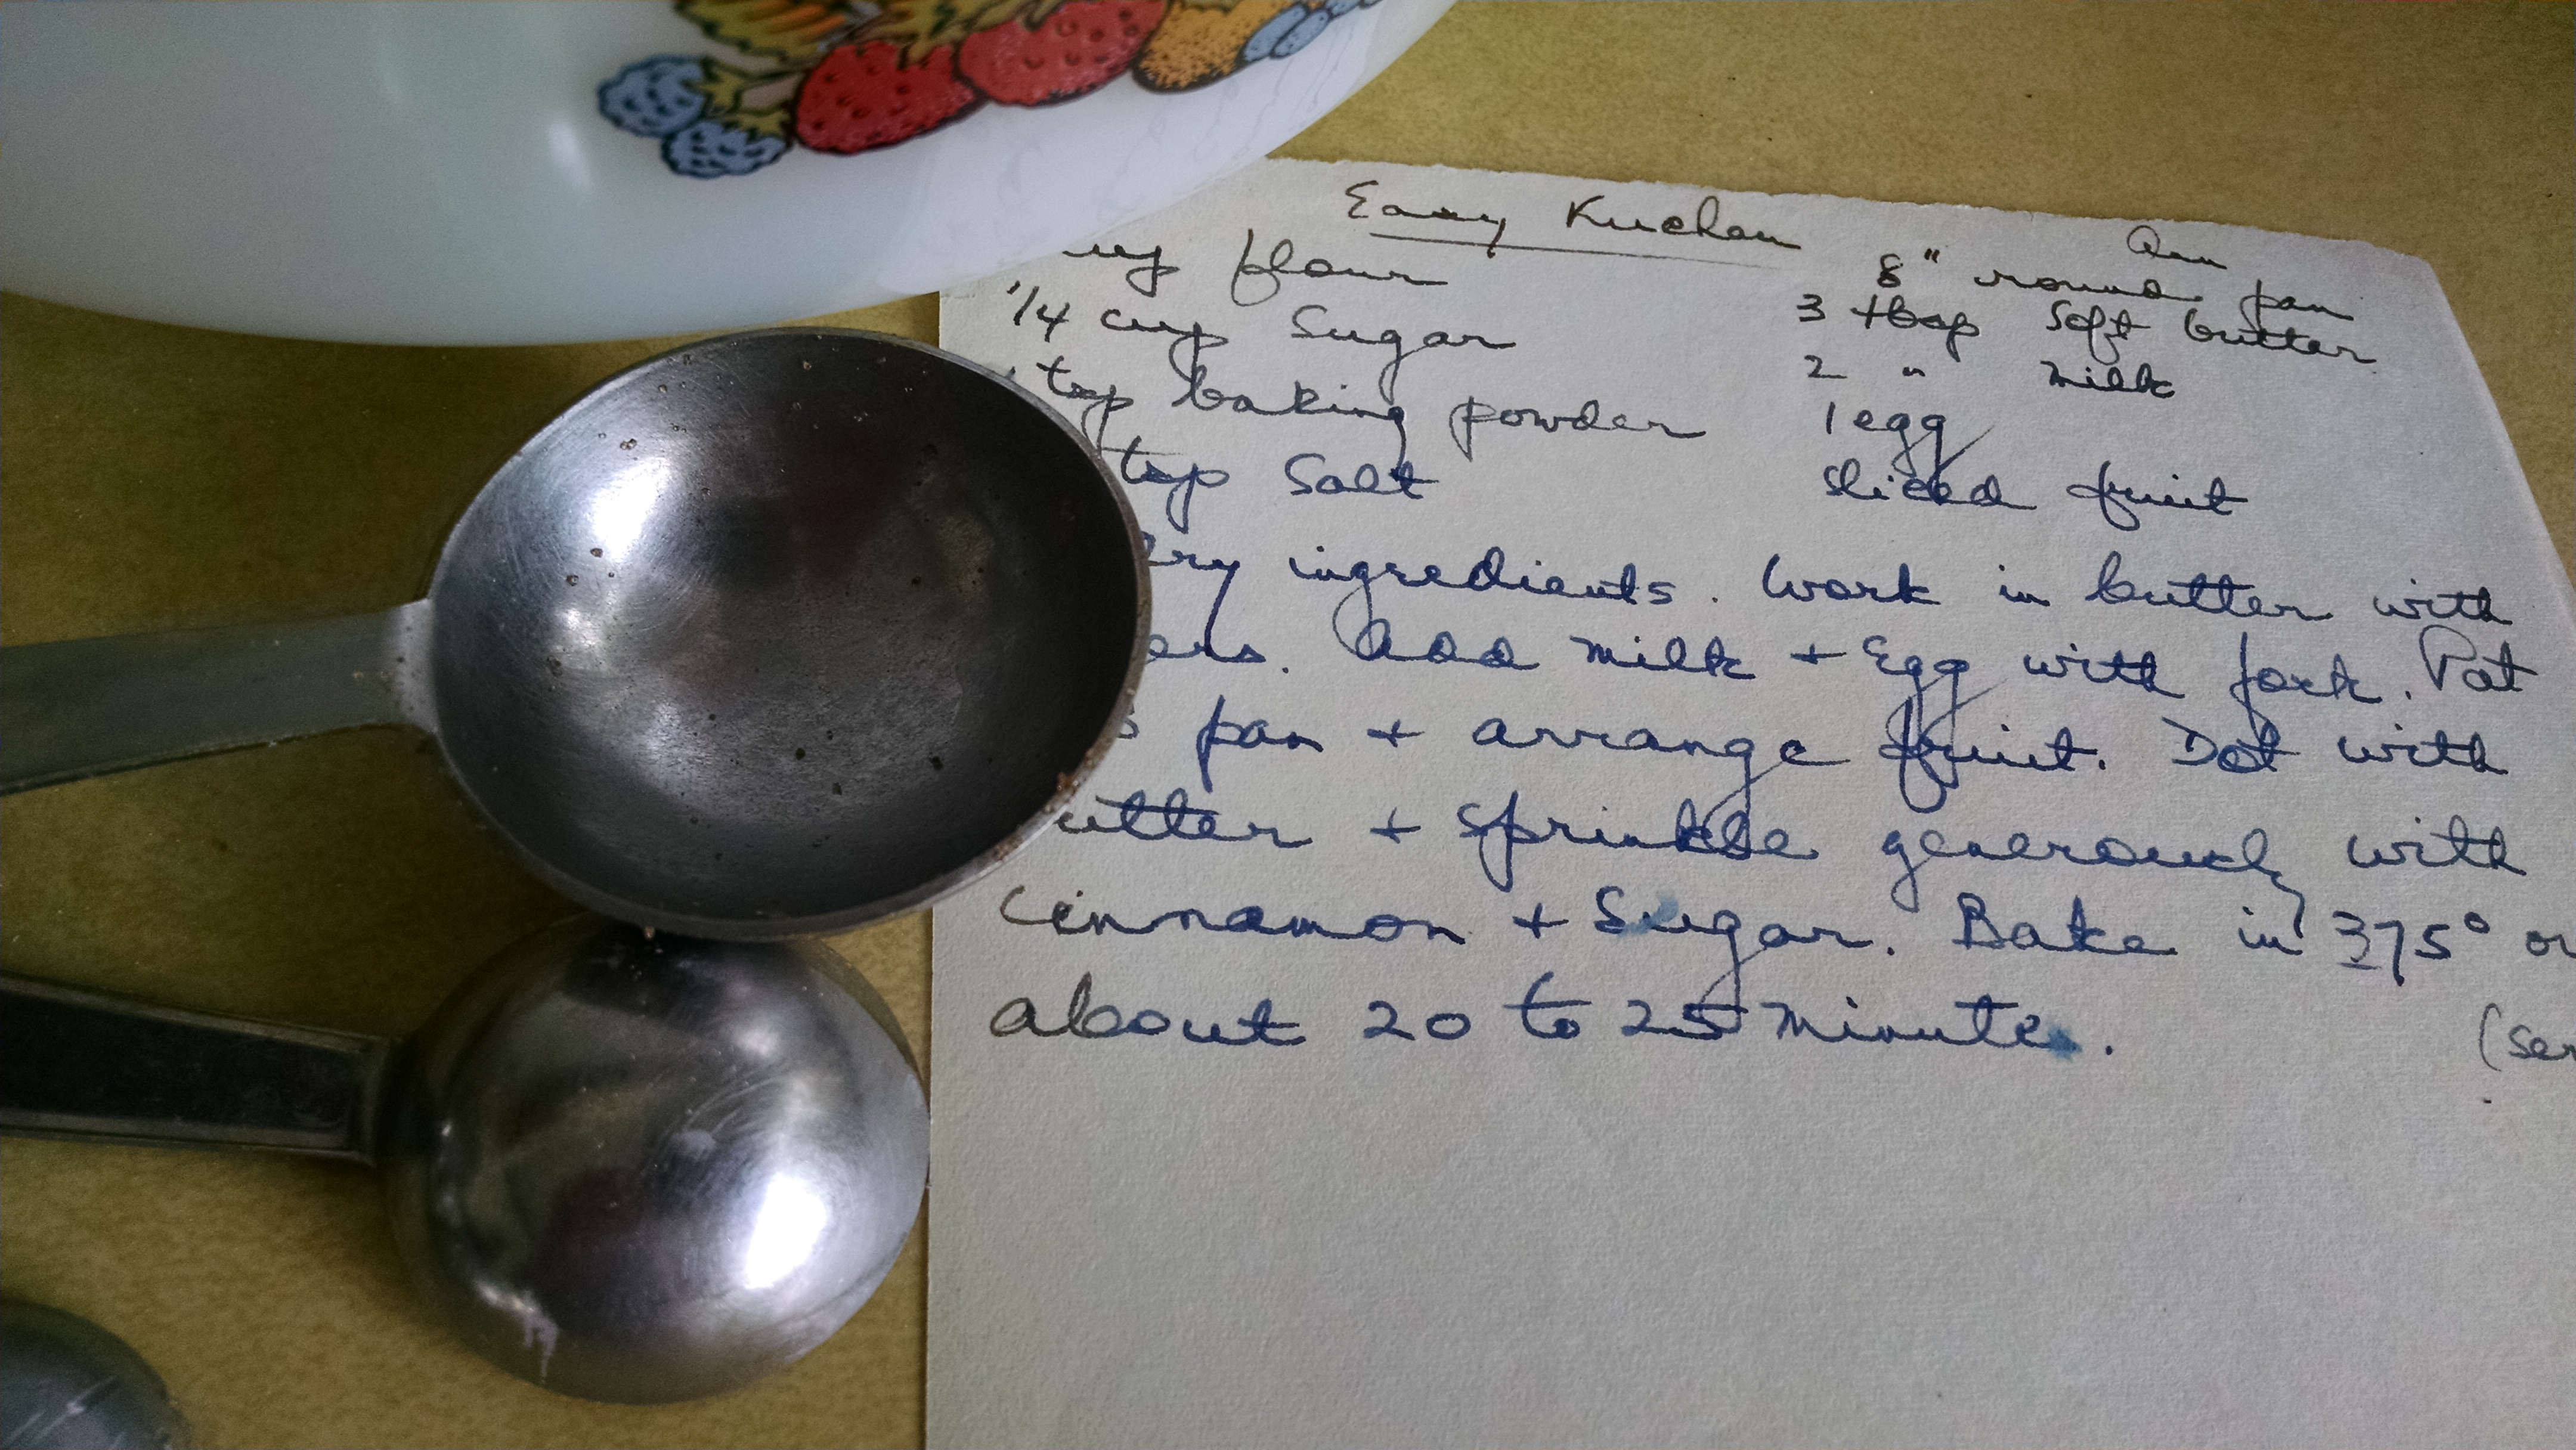 Easy Kuchen
8" round pan
flour
1/4 cup Sugar
3 tbsp Soft butter
tsp baking powder
2 " milk
1 egg
tsp Salt
sliced fruit
ingredients. Work in butter with
Add milk + Egg with fork. Pat
pan + arrange fruit. Dot with
utter + sprinkle generously with
cinnamon + Sugar. Bake in 375°
about 20 to 25 minutes.
(ser